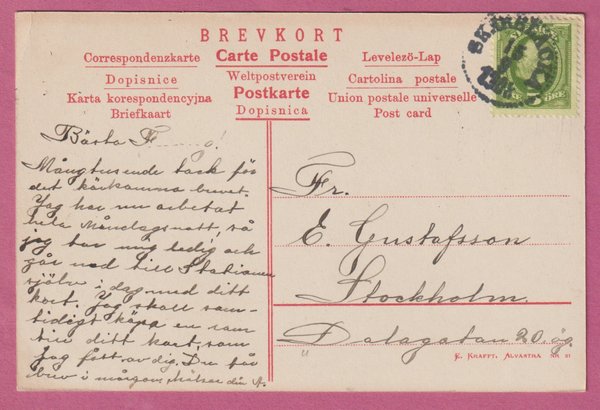 BREVKORT
Correspondenzkarte Carte Postale Levelezö-Lap
Dopisnice Weltpostverein Cartolina postale
Karta korespondencyjna Postkarte Union postale universelle
Briefkaart Dopisnica Post card
5 ÖRE
Bästa
Mångtusende tack för
det kärkomna brevet.
Jag har nu arbetat
hela Måndagsnatt, så
jag tar mig ledig och
går ned till Stationen
själv i dag med ditt
kort. Jag skall sam-
tidigt köpa en ram
till ditt kort, som
jag fått av dig. Du får
brev i morgon, hälsar din
Fr.
E. Gustafsson
Stockholm
Dalagatan 20. ög.
K. KRAFFT, ALVASTRA NR 21